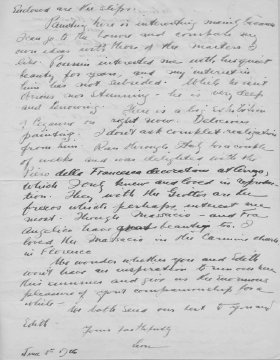 Enclosed are the slips.
Painting here is interesting mainly because
I can go to the Louvre and compare my
own ideas with those of the masters I
like. Poussin interested me with his great
beauty for years and my interest in
him has not subsided. While recent
are stunning - he is very deep
and knowing. There is a big exhibition
of on right now. Delacroix
painting. I don't ask complete realization
from him. Ran through Italy for a couple
of weeks and was delighted with the
Piero della Francesca decoration at Arezzo,
which I only knew and loved in reproduction.
They with the Giottos are the
frescos which perhaps interest me
most. Though Masaccio - and Fra
Angelico have great beauty too. I
loved the Masaccio in the Carmine church
in Florence
We wonder whether you and Edith
won't have an inspiration to run over here
this summer and give us the enormous
pleasure of your companionship for a
while -
We both send our best to you and
Edith
Yours faithfully
June 1st 1926